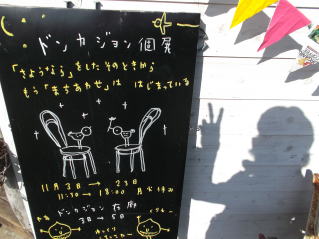 ドンカジョン個展
「さようなら」をしたそのときから
もう「まちあわせ」は はじまっている
11月3日→23日
11:30→18:00 月火休み
ドンカジョン在廊
3日→5日
ゆっくり